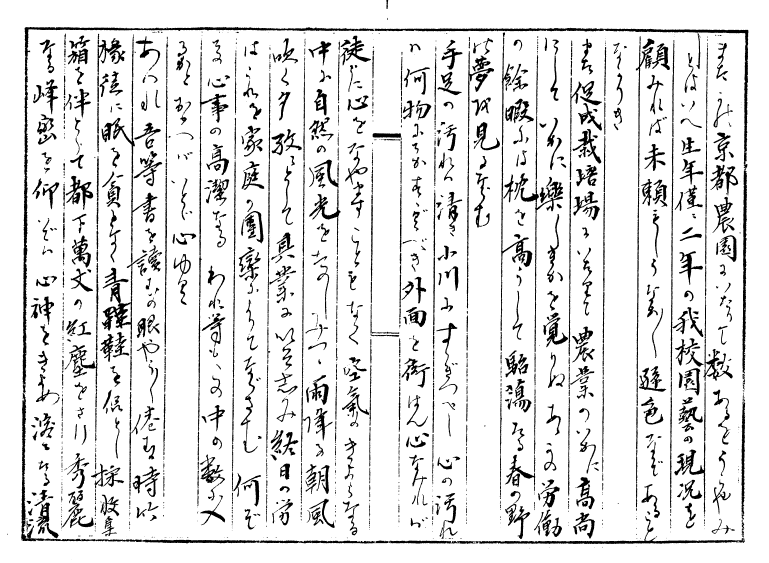 また〻此京都農園にいたりて数あるをうらやみ
しとはいへ生年僅に二年の我校園藝の現況を
顧みれば未頼もしうなむ遜色などあること
なかりき
また促成栽培場にいたりて農業のいかに高尚
にしていかに楽しきかを覚りぬあゝこの労働
の餘暇には枕を高うして駘蕩たる春の野
の夢を見るならむ
手足の汚れは清き小川にすゝぎつべし心の汚れ
は何物にかすゝぐべき外面を衒はん心なければ
徒に心をなやますこともなく空気のきよらなる
中に自然の風光をたのしみつゝ雨降る朝風
吹く夕務るとて其業にいそしみ終日の労
はこれを家庭の團欒によりてなぐさむ何ぞ
其心事の高潔なるわれ等もこの中の数に入
るかとおもへばいとゞ心ゆく
あはれ吾等書を読むの眼やうやく倦む時は
緑徒に眠を貪となく青鞋を侶とし採收
箱を伴として都下萬丈の紅塵をさけ秀麗
なる峰巒を仰いでは心神をきよめ滾々たる清流